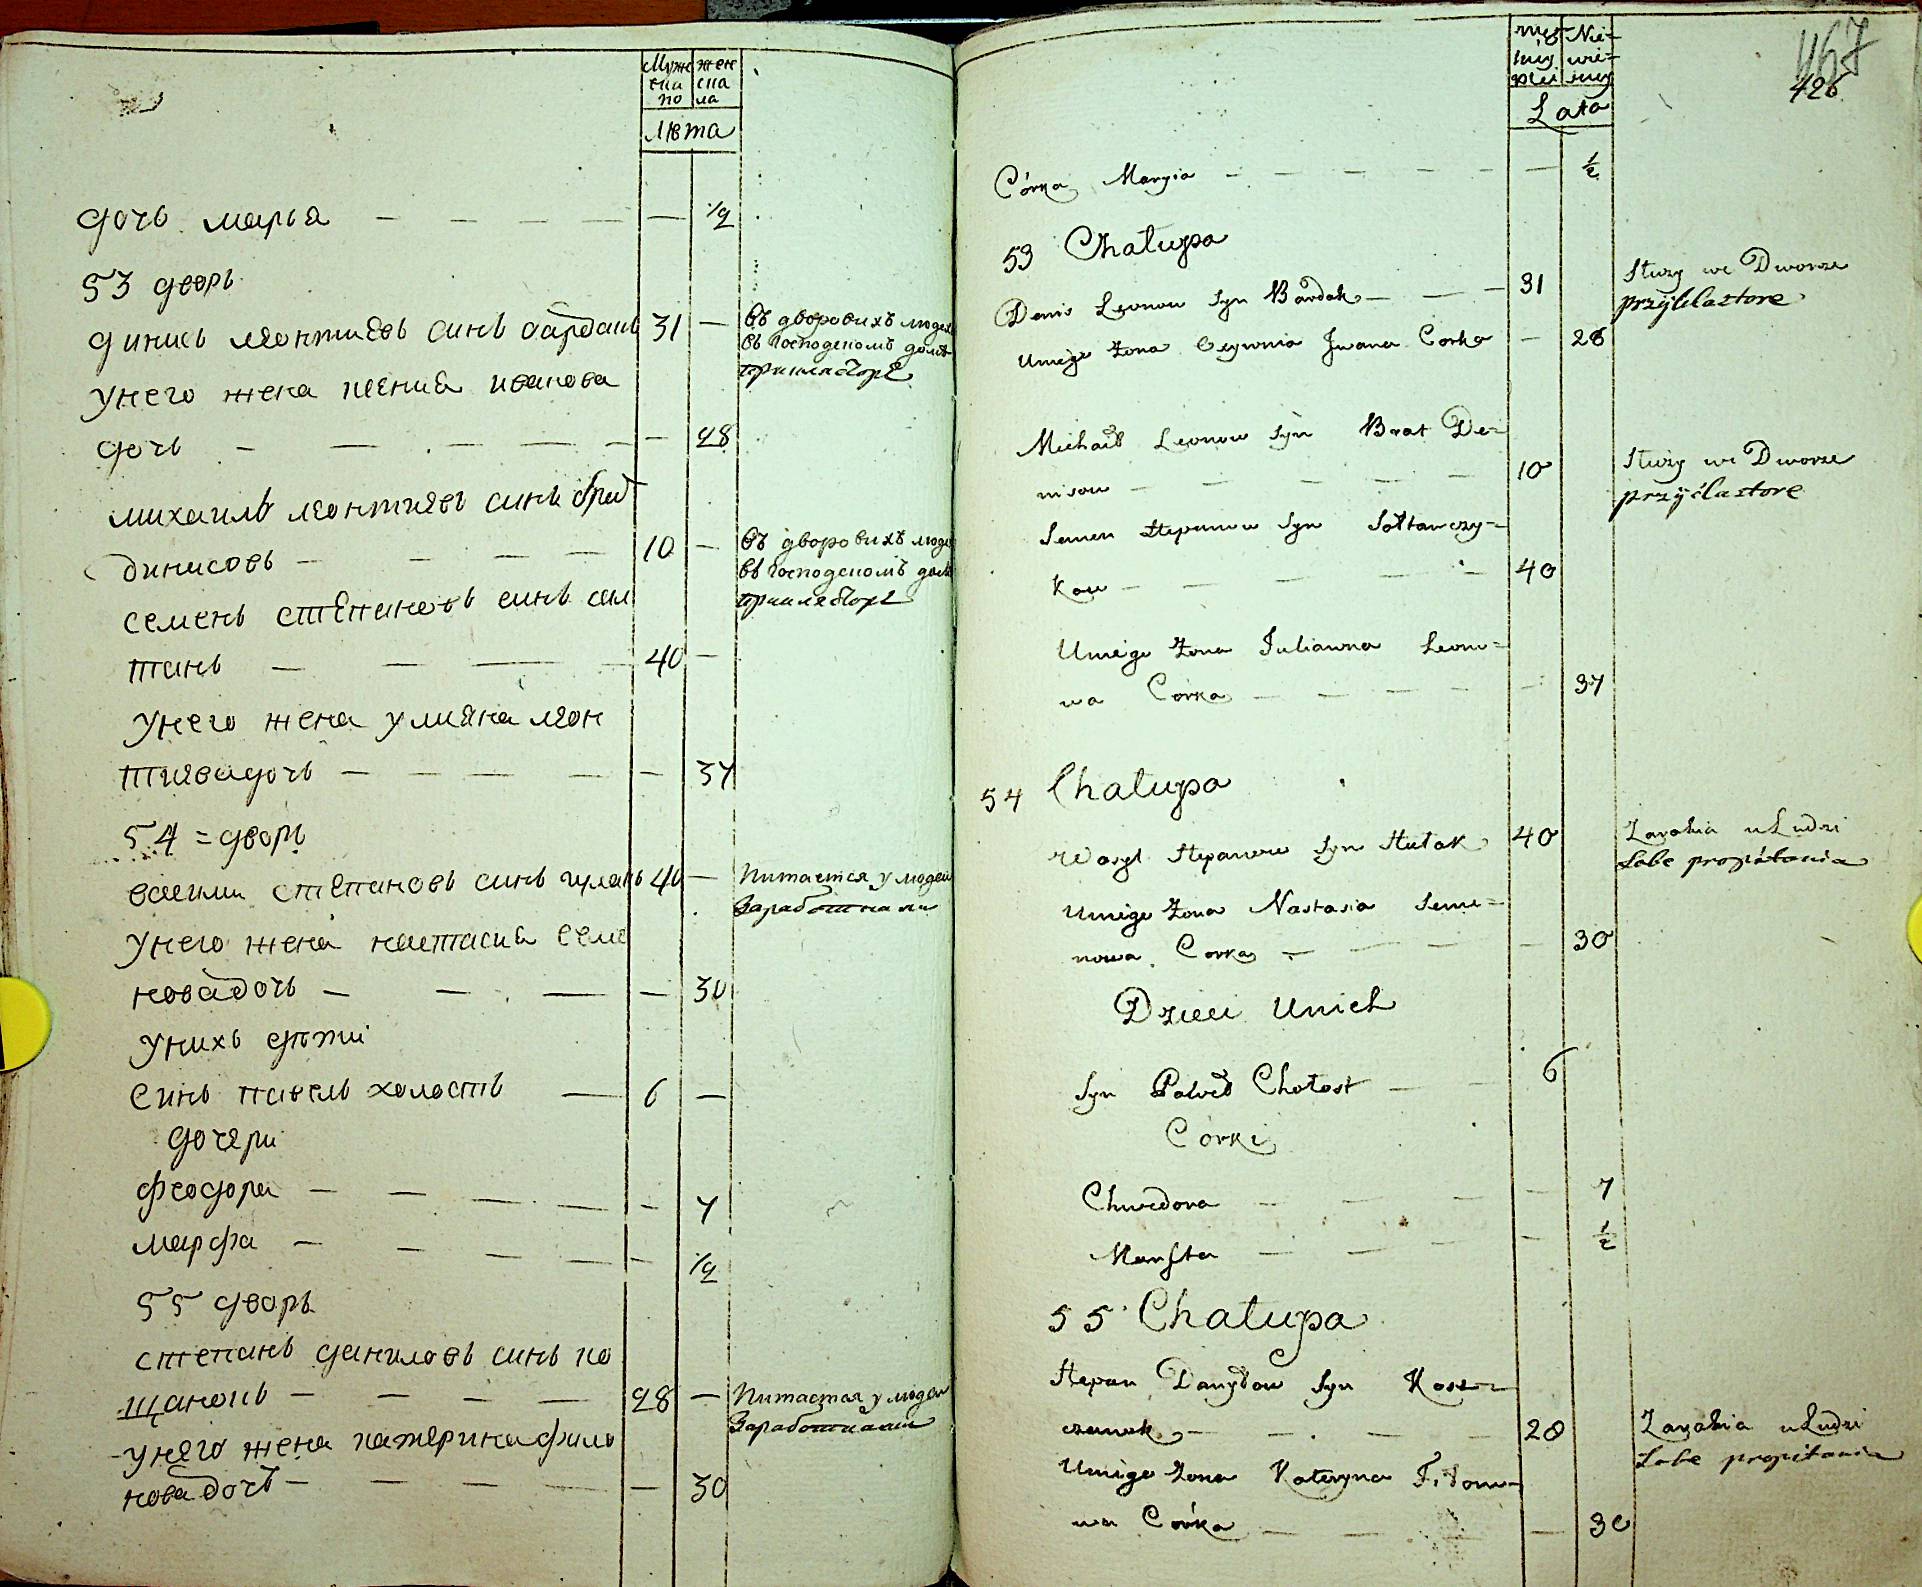 Мужеска по
женска ла
Лѣта
дочь марья — — — — — 1/2
53 дворъ
динись леонтиевъ синъ бардакъ 31 —
въ дворовихъ людех
въ господскомъ домѣ
при клясторе
унего жена ксения иванова
дочь — — — — — 28
михаилъ леонтиевъ синъ брат
динисовъ — — — — 10 —
въ дворовихъ люде
въ господскомъ дом
при клясторе
семенъ степановъ синъ сал
танъ — — — — 40 —
унего жена улияна леон
тиева дочь — — — — — 37
54 = дворъ
василь степановъ синъ гулакъ 40 —
питается у людей
заработками
унего жена настасия семе
нова дочь — — — — 30
унихъ дѣти
синъ павелъ холостъ — 6 —
дочери
феодора — — — — — 7
марфа — — — — — 1/2
55 дворъ
степанъ даниловъ синъ ко
щанокъ — — — — 28 —
питается у людей
заработками
унего жена катерина фило
нова дочь — — — — — 30
467
426
Lata
Córka Maryia — — — — — — 1/2
53 Chałupa
Denis Leonow Syn Bardak — — — 31
Służy we Dworze
przyklastore
Uniego Żona Ceywnia Iwana Corka — 28
Michaił Leonow Syn Brat De=
nisow — — — — — 10
Służy we Dworze
przyklastore
Semen Stepanow Syn Sołtanczy=
kow — — — — — 40
Uniego Żona Julianna Leono=
wa Corka — — — — — 37
54 Chałupa
Wasyl Stepanow Syn Hulak 40
Zarabia u Ludzi
Sobe propitania
Uniego Żona Nastasia Seme=
nowa Corka — — — — 30
Dzieci Unich
Syn Paweł Chołost — — 6
Córki
Chwedora — — — — 7
Marfta — — — — 1/2
55 Chałupa
Stepan Danyłow Syn Kosz=
czanok — — — — 28
Zarabia u Ludzi
Sobe propitania
Uniego Żona Kateryna Fiłono=
wa Córka — — — — 30